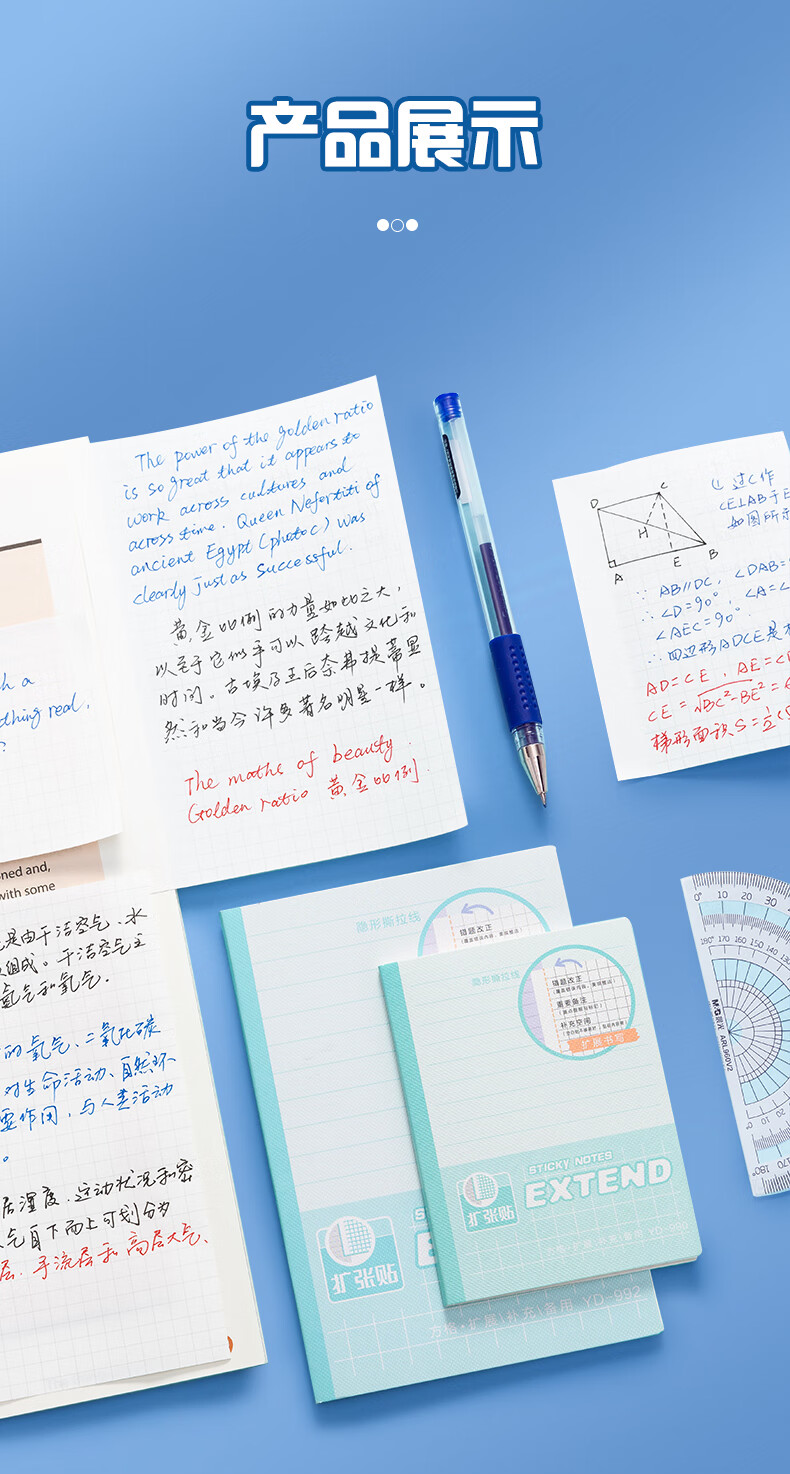 产品展示
The power of the golden ratio
is so great that it appears to
work across cultures and
across time. Queen Nefertiti of
ancient Egypt (photo c) was
clearly just as successful.
黄金比例的力量如此之大,
以至于它似乎可以跨越文化和
时间。古埃及王后奈弗提蒂显
然和当今许多著名明星一样。
The maths of beauty.
Golden ratio 黄金比例.
h a
thing real.
?
ned and,
with some
是由干洁空气、水
组成。干洁空气主
氮气和氧气.
的氧气、二氧化碳
对生命活动、自然环
要作用,与人类活动
。
居湿度、运动状况和密
气自下而上可划分为
层、平流层和高层大气、
D
C
H
A
E
B
(1) 过C作
CE⊥AB于E
如图所示
∵ AB∥DC, ∠DAB=
∴ ∠D=90° ∴ ∠A=∠
∠AEC=90°
∴ 四边形ADCE是
AD=CE, AE=C
CE=√BC²-BE²=
梯形面积S=½(
隐形撕拉线
错题改正
扩张贴
方格·扩展\补充\备用 YD-992
隐形撕拉线
错题改正
重要备注
补充空间
扩展书写
STICKY NOTES
EXTEND
扩张贴
YD-990
0° 10 20 30
180° 170 160 150 140
M&G 晨光 ARL960V2